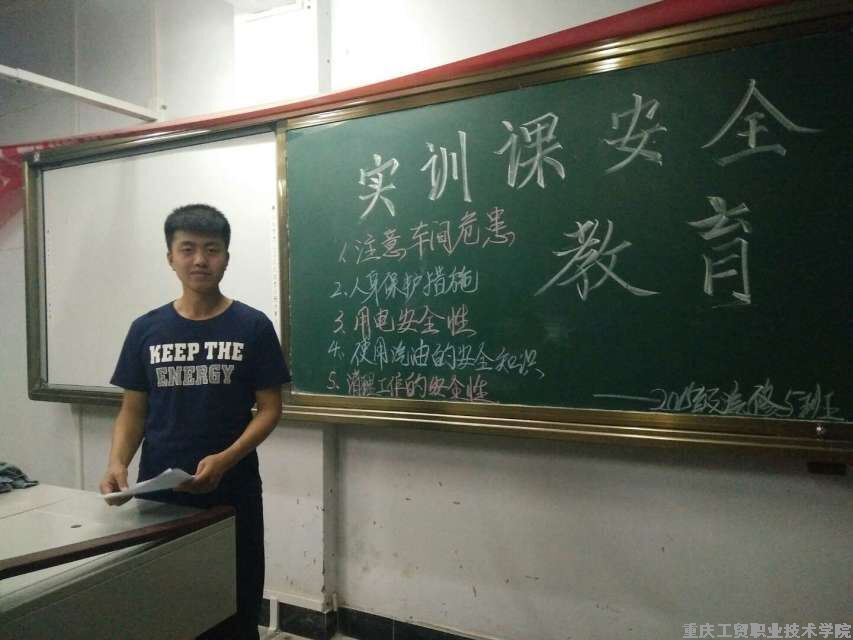 实训课安全
教育
1.注意车间危患
2.人身保护措施
3.用电安全性
4.使用汽油的安全知识
5.清理工作的安全性
KEEP THE
ENERGY
重庆工贸职业技术学院